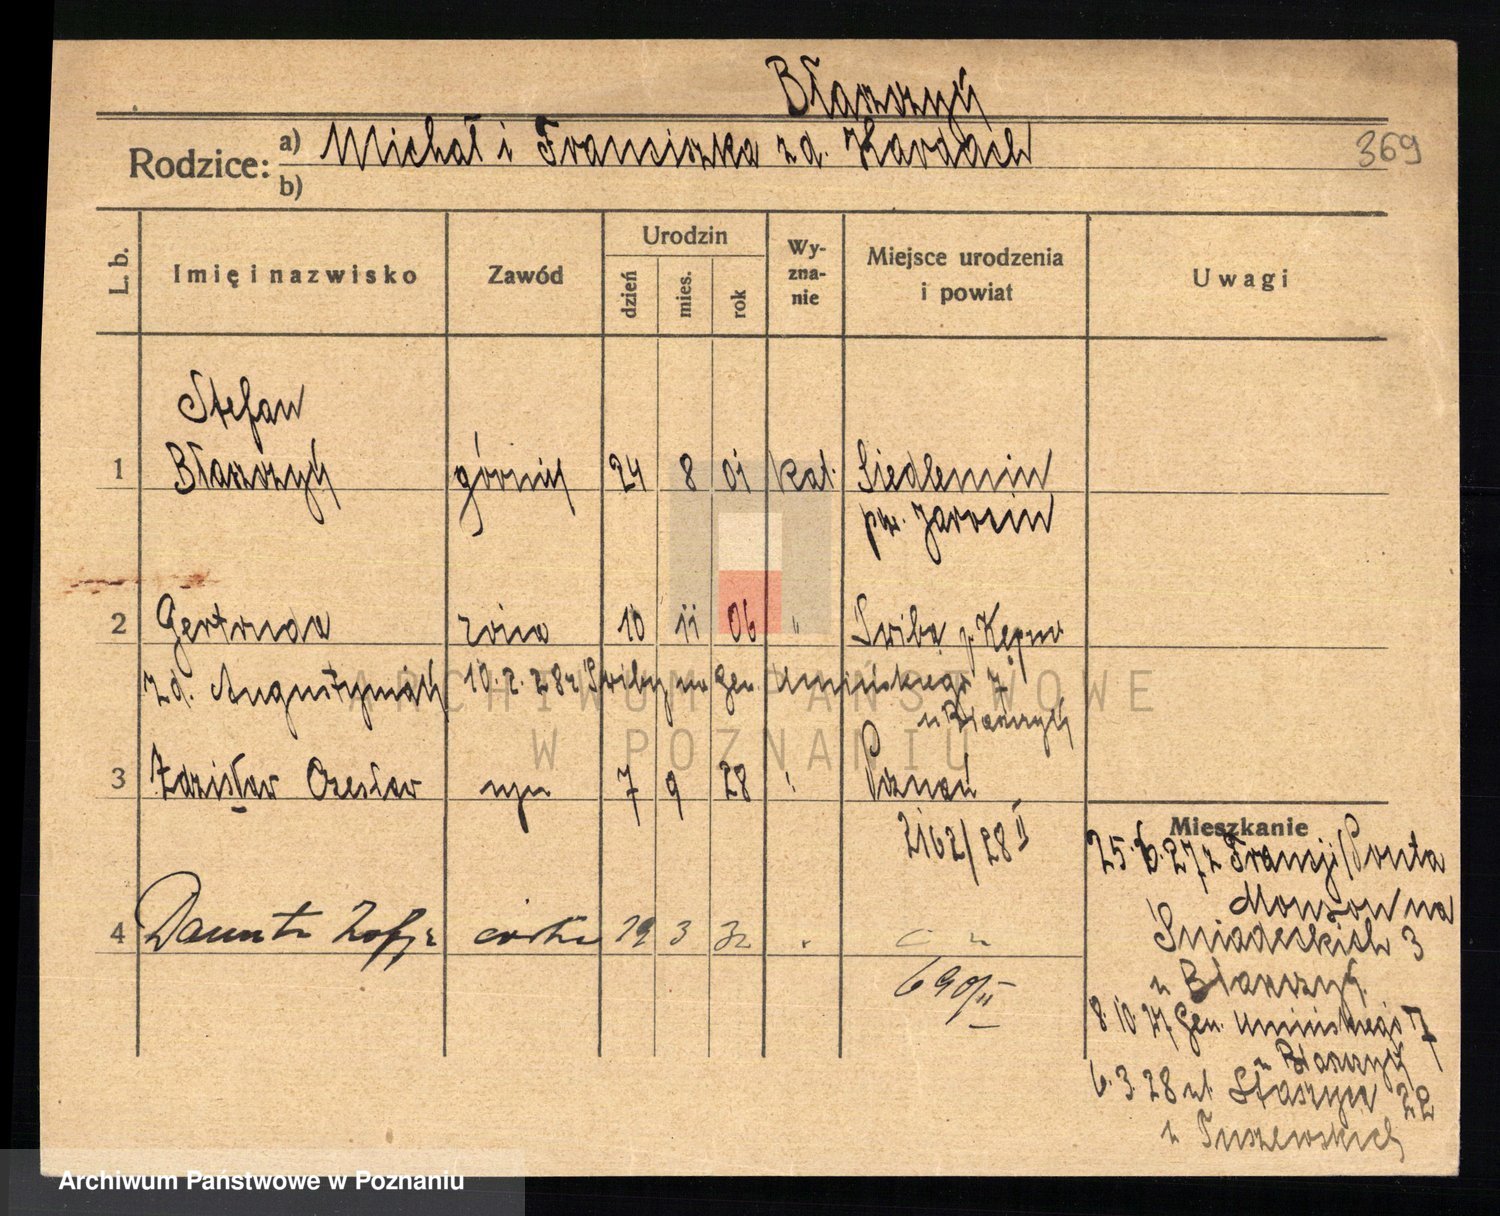 Błaszczyk
Rodzice: a) Michał i Franciszka zd.
b)
369
L. b. Imię i nazwisko Zawód Urodzin dzień mies. rok Wyznanie Miejsce urodzenia i powiat Uwagi
Stefan
1 Błaszczyk górnik 24 8 01 kat. Siedlemin
pow. Jarocin
2 Gertruda żona 10 11 06 " p. Kępno
zd. Augustyniak 10. 2. 28 z na Gen Umińskiego 7
u Błaszczyk
3 Zdzisław Czesław syn 7 9 28 Poznań
2162/28 II
Mieszkanie
25. 6. 27 z Francji
na
4 Danuta Zofja córka 29 3 32
Śniadeckich 3
690/II
u Błaszczyk
8. 10. 27 Gen. Umińskiego 7
u Błaszczyk
6. 3. 28 ul. Staszyca 22
u
ARCHIWUM PAŃSTWOWE
W POZNANIU
Archiwum Państwowe w Poznaniu